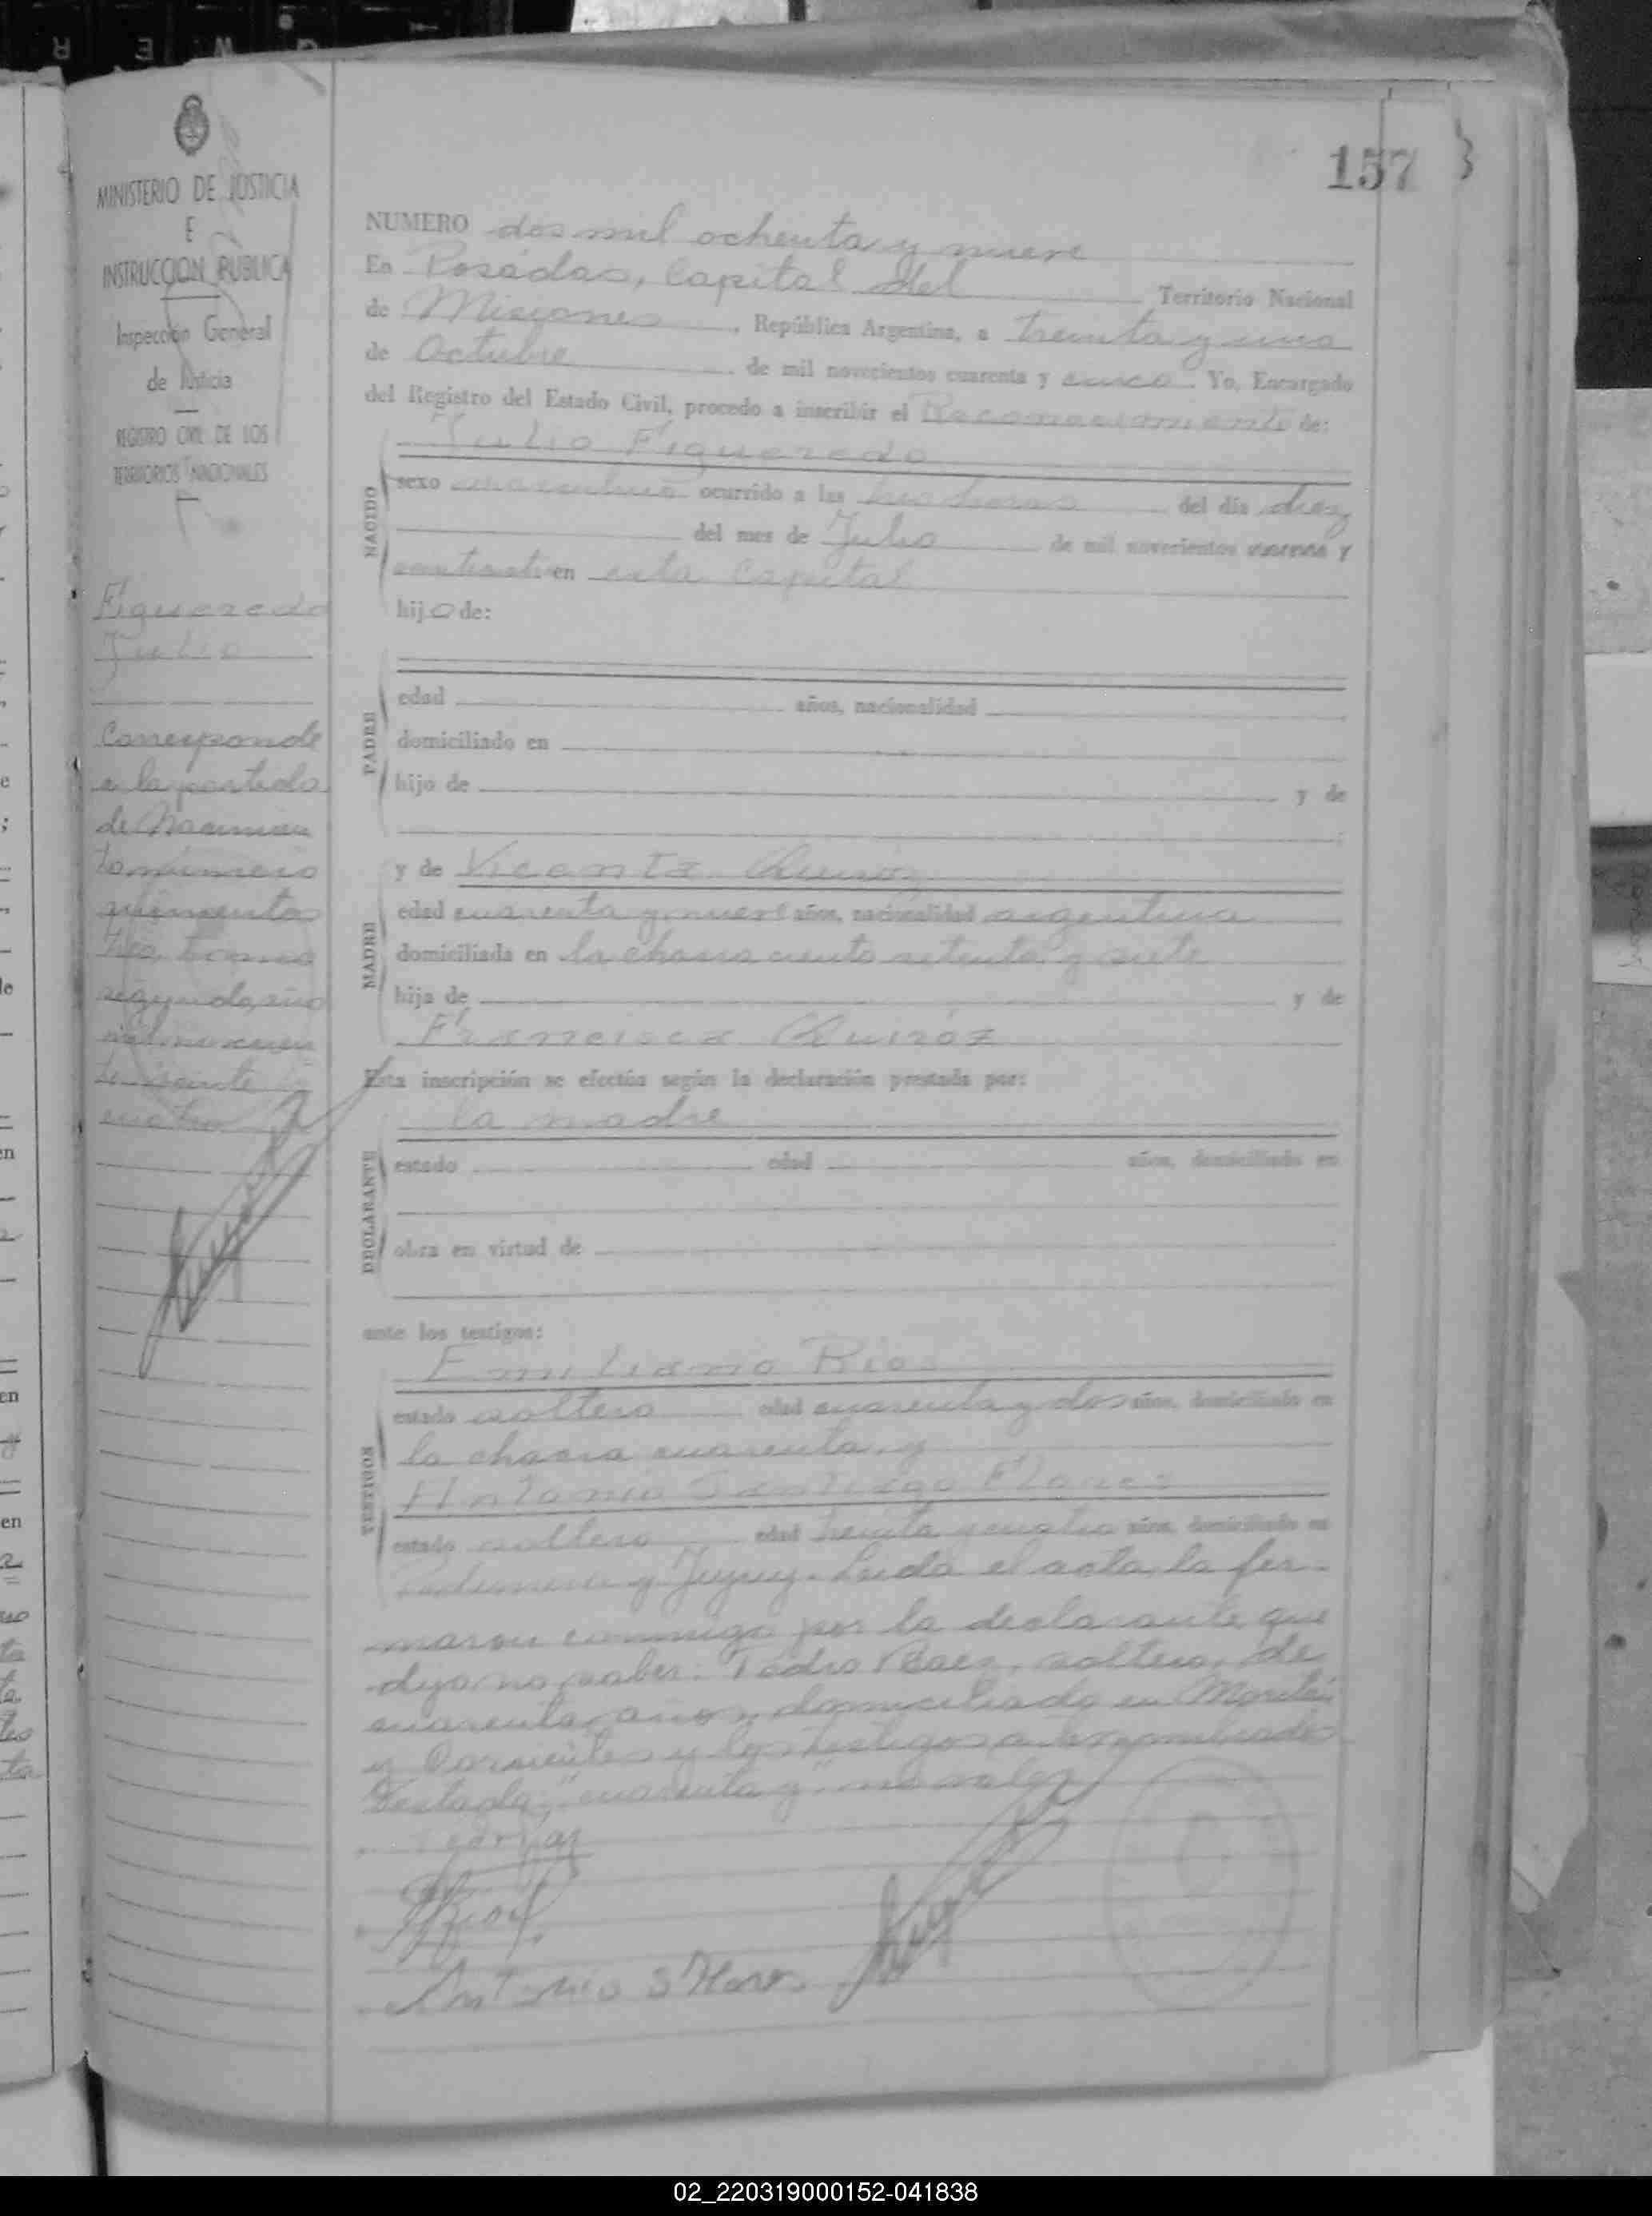 157
MINISTERIO DE JUSTICIA
E
INSTRUCCION PUBLICA
Inspección General
de Justicia
REGISTRO CIVIL DE LOS
TERRITORIOS NACIONALES
Figueredo
Julio
Corresponde
a la partida
de Nacimien
to número
quinientos
tres, tomo
segundo, año
mil novecien
tos veinte y
cuatro
NUMERO dos mil ochenta y nueve
En Posadas, Capital del Territorio Nacional
de Misiones, República Argentina, a treinta y uno
de Octubre de mil novecientos cuarenta y cinco. Yo, Encargado
del Registro del Estado Civil, procedo a inscribir el Reconocimiento de:
Julio Figueredo
NACIDO
sexo masculino ocurrido a las tres horas del día diez
del mes de Julio de mil novecientos cuarenta y
en esta Capital
hijo de:
PADRE
edad años, nacionalidad
domiciliado en
hijo de y de
MADRE
y de Vicenta Quiroz
edad cuarenta y nueve años, nacionalidad argentina
domiciliada en la chacra ciento setenta y siete
hija de y de
Francisca Quiróz
Esta inscripción se efectúa según la declaración prestada por:
DECLARANTE
la madre
estado edad años, domiciliado en
obra en virtud de
ante los testigos:
TESTIGOS
Emiliano Rios
estado soltero edad cuarenta y dos años, domiciliado en
la chacra cuarenta, y
Antonio Santiago Flores
estado soltero edad treinta y cuatro años, domiciliado en
y Jujuy. Leida el acta, la fir-
maron conmigo por la declarante que
dijo no saber: Pedro Baez, soltero, de
cuarenta años, domiciliado en
y Corrientes y los testigos antes nombrados
Testado: "cuarenta y" no vale
Antonio S Flores
02_220319000152-041838